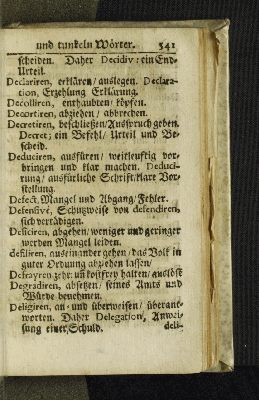 und tunkeln Wörter. 541
scheiden. Daher Decidiv: ein End-
Urteil.
Declariren, erklären/ auslegen. Declara-
tion, Erzehlung Erklärung.
Decolliren, enthaubten/ köpfen.
Decortiren, abziehen/ abbrechen.
Decretiren, beschließen/ Ausspruch geben.
Decret; ein Befehl/ Urteil und Be-
scheid.
Deduciren, ausfüren/ weitleuftig vor-
bringen und klar machen. Deduci-
rung/ ausfürliche Schrift/ klare Vor-
stellung.
Defect, Mangel und Abgang/ Fehler.
Defensivè, Schutzweise von defendiren,
sich vertädigen.
Deficiren, abgehen/ weniger und geringer
werden Mangel leiden.
defiliren, auseinander gehen/ das Volk in
guter Ordnung abziehen lassen/
Defrayren zehr uñ kostfrey halten/ auslöse
Degradiren, absetzen/ seines Amts und
Würde benehmen.
Deligiren, an- und überweisen/ überant-
worten. Daher Delegation, Anwei-
sung einer Schuld. deli-